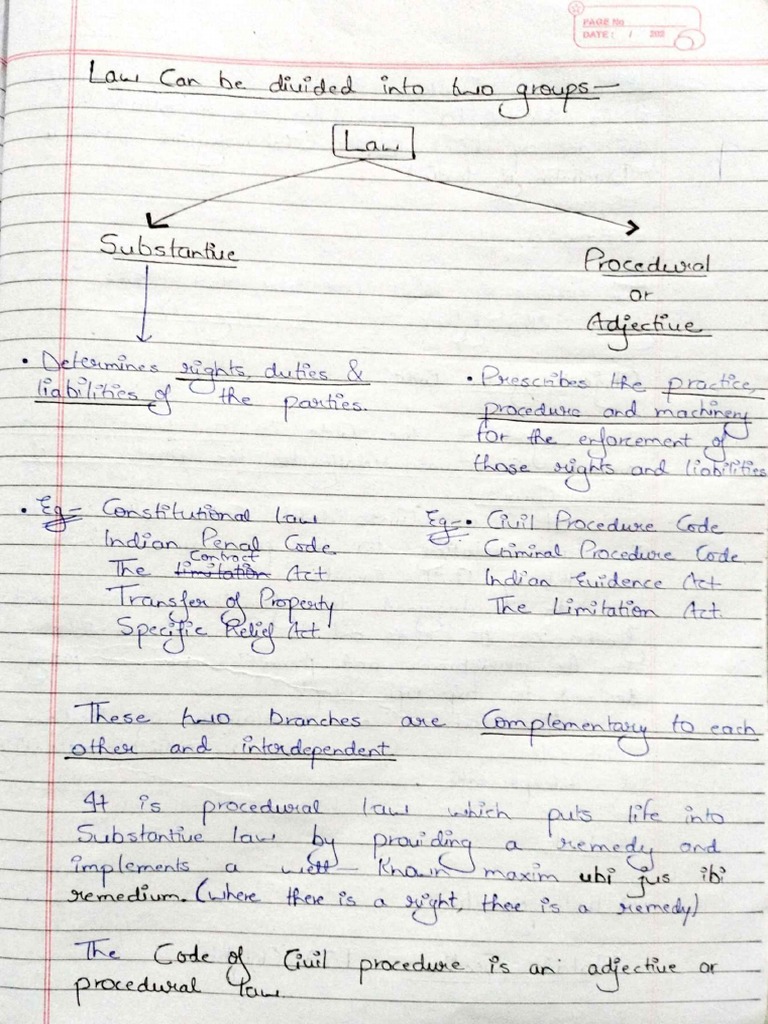 PAGE No
DATE: / 200
Law Can be divided into two groups—
Law
Substantive
Procedural
or
Adjective
• Determines rights, duties &
liabilities of the parties.
• Prescribes the practice,
procedure and machinery
for the enforcement of
those rights and liabilities
• Eg- Constitutional law
Indian Penal Code.
The limitation Contract Act
Transfer of Property
Specific Relief Act.
Eg-• Civil Procedure Code
Criminal Procedure Code
Indian Evidence Act
The Limitation Act.
These two branches are Complementary to each
other and interdependent.
It is procedural law which puts life into
Substantive law by providing a remedy and
implements a well-Known maxim ubi jus ibi
remedium. (where there is a right, there is a remedy)
The Code of Civil procedure is an adjective or
procedural law.